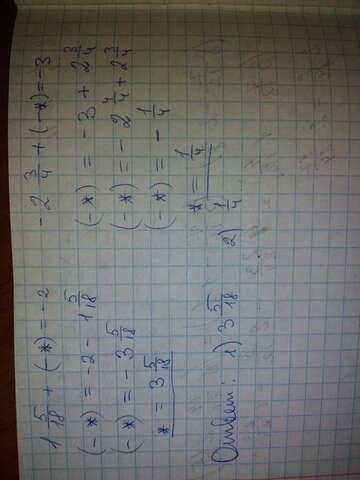 1 5/18 + (-*) = -2
(-*) = -2 - 1 5/18
(-*) = -3 5/18
* = 3 5/18
-2 3/4 + (-*) = -3
(-*) = -3 + 2 3/4
(-*) = -2 4/4 + 2 3/4
(-*) = -1/4
* = 1/4
Ответ: 1) 3 5/18 2) 1/4